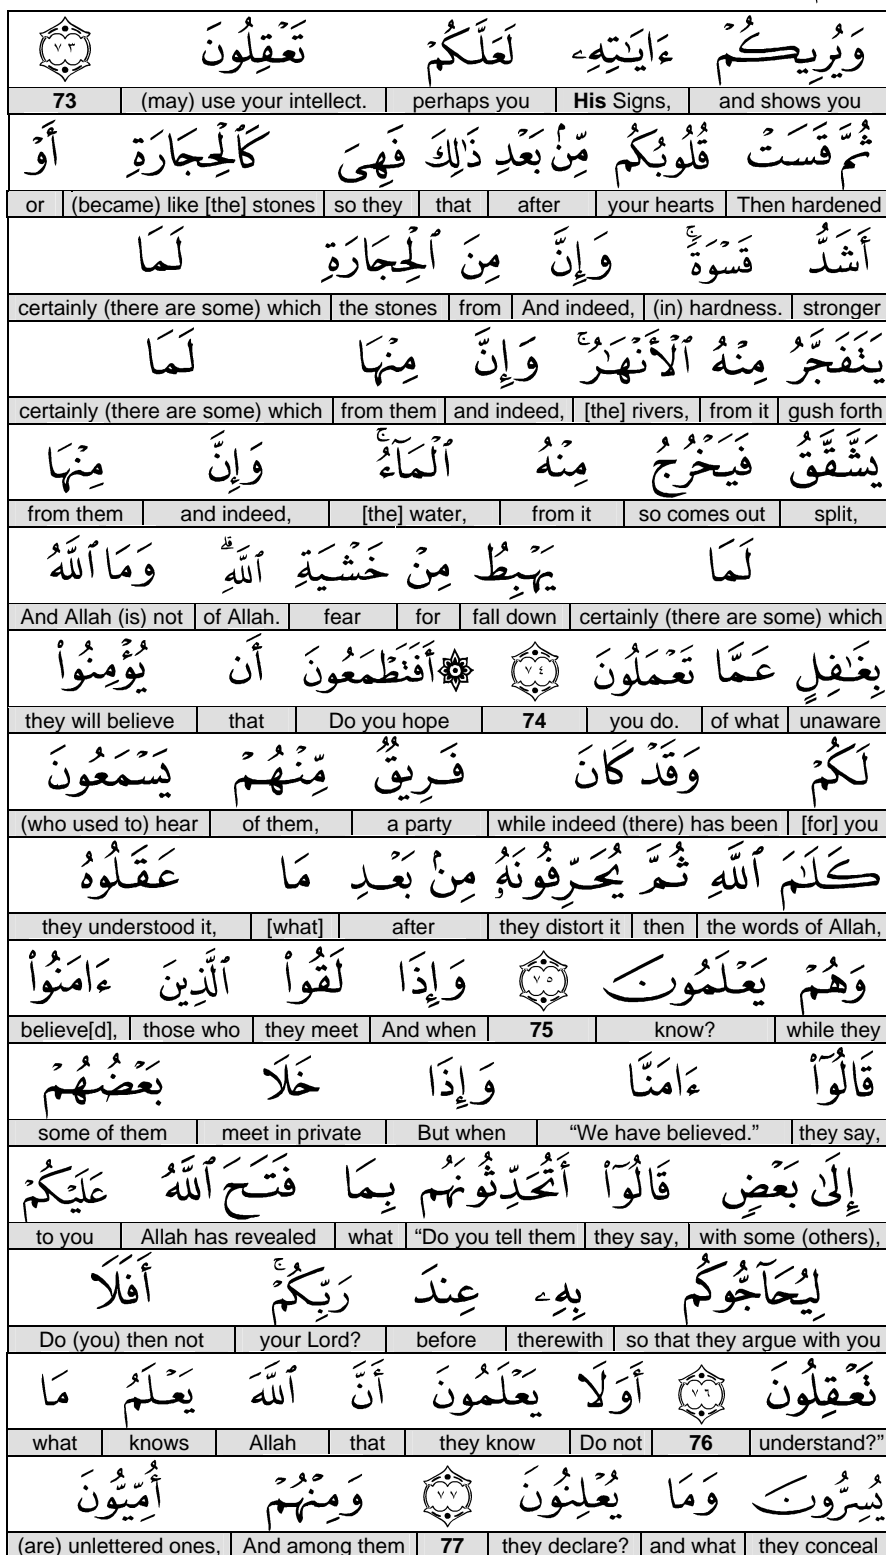 وَيُرِيكُمْ ءَايَـٰتِهِۦ لَعَلَّكُمْ تَعْقِلُونَ ٧٣
and shows you His Signs, perhaps you (may) use your intellect. 73
ثُمَّ قَسَتْ قُلُوبُكُم مِّنۢ بَعْدِ ذَٰلِكَ فَهِىَ كَٱلْحِجَارَةِ أَوْ
Then hardened your hearts after that so they (became) like [the] stones or
أَشَدُّ قَسْوَةً ۚ وَإِنَّ مِنَ ٱلْحِجَارَةِ لَمَا
stronger (in) hardness. And indeed, from the stones certainly (there are some) which
يَتَفَجَّرُ مِنْهُ ٱلْأَنْهَـٰرُ ۚ وَإِنَّ مِنْهَا لَمَا
gush forth from it [the] rivers, and indeed, from them certainly (there are some) which
يَشَّقَّقُ فَيَخْرُجُ مِنْهُ ٱلْمَآءُ ۚ وَإِنَّ مِنْهَا
split, so comes out from it [the] water, and indeed, from them
لَمَا يَهْبِطُ مِنْ خَشْيَةِ ٱللَّهِ ۗ وَمَا ٱللَّهُ
certainly (there are some) which fall down for fear of Allah. And Allah (is) not
بِغَـٰفِلٍ عَمَّا تَعْمَلُونَ ٧٤ ۞ أَفَتَطْمَعُونَ أَن يُؤْمِنُوا۟
unaware of what you do. 74 Do you hope that they will believe
لَكُمْ وَقَدْ كَانَ فَرِيقٌ مِّنْهُمْ يَسْمَعُونَ
[for] you while indeed (there) has been a party of them, (who used to) hear
كَلَـٰمَ ٱللَّهِ ثُمَّ يُحَرِّفُونَهُۥ مِنۢ بَعْدِ مَا عَقَلُوهُ
the words of Allah, then they distort it after [what] they understood it,
وَهُمْ يَعْلَمُونَ ٧٥ وَإِذَا لَقُوا۟ ٱلَّذِينَ ءَامَنُوا۟
while they know? 75 And when they meet those who believe[d],
قَالُوٓا۟ ءَامَنَّا وَإِذَا خَلَا بَعْضُهُمْ
they say, “We have believed.” But when meet in private some of them
إِلَىٰ بَعْضٍ قَالُوٓا۟ أَتُحَدِّثُونَهُم بِمَا فَتَحَ ٱللَّهُ عَلَيْكُمْ
with some (others), they say, “Do you tell them what Allah has revealed to you
لِيُحَآجُّوكُم بِهِۦ عِندَ رَبِّكُمْ ۚ أَفَلَا
so that they argue with you therewith before your Lord? Do (you) then not
تَعْقِلُونَ ٧٦ أَوَلَا يَعْلَمُونَ أَنَّ ٱللَّهَ يَعْلَمُ مَا
understand?” 76 Do not they know that Allah knows what
يُسِرُّونَ وَمَا يُعْلِنُونَ ٧٧ وَمِنْهُمْ أُمِّيُّونَ
they conceal and what they declare? 77 And among them (are) unlettered ones,